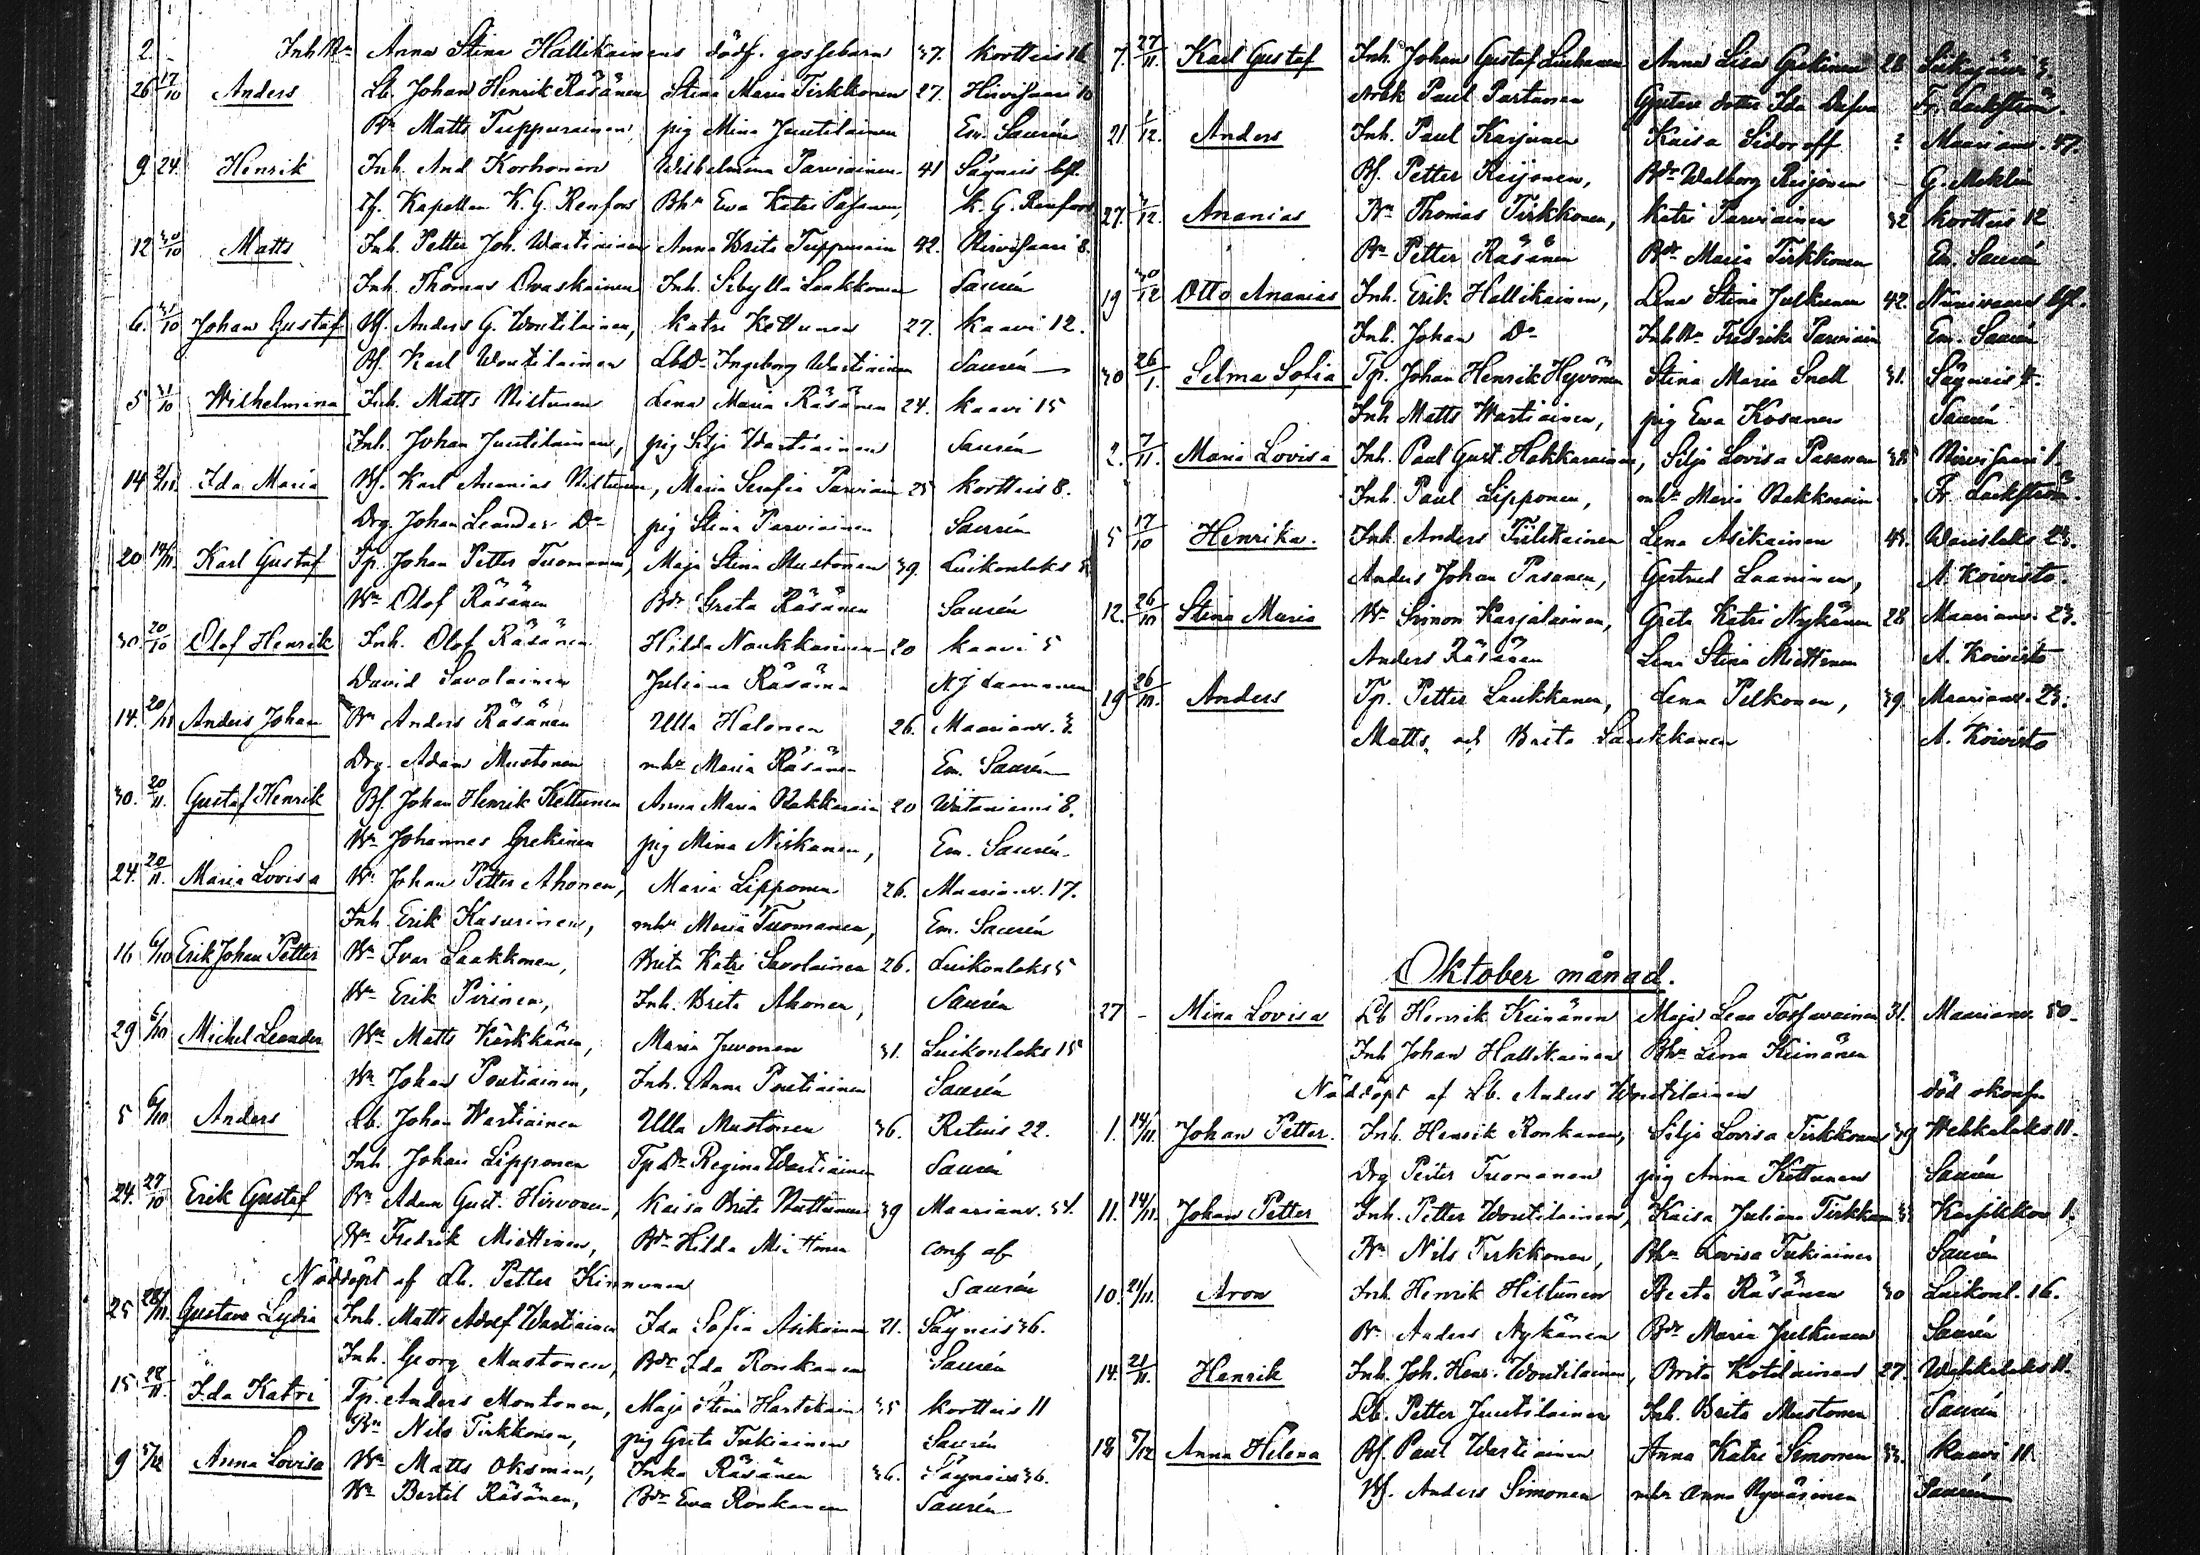 2. - Inh Nn Anna Stina Hallikainens dödf. gossebarn 37. Kortteis 16
26 17/10 Anders Lb. Johan Henrik Räsänen Stina Maria Tirkkonen 27. Hirvisaari 10
Bn Matts Tuppurainen pig Mina Juutilainen Em. Saurén
9 24. Henrik Inh. And Korhonen Wilhelmina Parviainen 41 Säyneis bfl.
tf. Kapellan K. G. Renfors Bhn Ewa Katri Pasanen, K. G. Renfors
12 30/10 Matts Inh. Petter Joh. Wartiainen Anna Brita Tuppurain 42. Hirvisaari 8.
Inh. Thomas Ovaskainen Inh. Sibylla Laakkonen Saurén
6. 31/10 Johan Gustaf Bf. Anders G. Woutilainen, Katri Kettunen 27. Kaavi 12.
Bf. Karl Woutilainen LbDr Ingeborg Wartiainen Saurén
5 31/10 Wilhelmina Inh. Matts Miettunen Lena Maria Räsänen 24. Kaavi 15
Inh. Johan Juutilainen, pig Silja Wartiainen Saurén
14 2/11 Ida Maria Bf. Karl Ananias, Maria Serafia Parviain 25 Kortteis 8.
Drg. Johan Leander Do pig Stina Parviainen Saurén
20 14/11. Karl Gustaf Tp. Johan Petter Tuomanen, Maja Stina Mustonen 39. Luikonlaks
Bn Olof Räsänen Bdr Greta Räsänen Saurén
30. 20/10 Olof Henrik Inh. Olof Räsänen Hilda Noukkarinen 20 Kaavi 5
David Savolainen Juliana Räsänen
14. 20/11 Anders Johan Bn Anders Räsänen Ulla Halonen 26. Maarianv. 3.
Drg. Adam Mustonen mhr Maria Räsänen Em. Saurén
30. 20/11. Gustaf Henrik Bf. Johan Henrik Kettunen Anna Maria Hakkarain 20 Wiitaniemi 8.
Bn Johannes Grekinen pig Mina Niskanen, Em. Saurén
24. 20/11. Maria Lovisa Bn Johan Petter Ahonen, Maria Lipponen 26. Maarianv. 17.
Inh. Erik Kasurinen, mhr Maria Tuomanen, Em. Saurén
16 6/10 Erik Johan Petter Bn Ivar Laakkonen, Brita Katri Savolainen 26. Luikonlaks 5
Bn Erik Pirinen, Inh. Brita Ahonen, Saurén
29 6/10 Michel Leander Bn Matts Kärkkänen, Maria Juvonen 31. Luikonlaks 15
Bn Johan Poutiainen, Inh. Anna Poutiainen Saurén
5 6/10 Anders Lb. Johan Wartiainen Ulla Mustonen 36. Retuis 22.
Inh. Johan Lipponen Tp Dr Regina Wartiainen Saurén
24. 27/10 Erik Gustaf Bn Adam Gust. Hirvonen, Kaisa Brita 39 Maarianv. 54.
Bn Fredrik Miettinen, Bdr Hilda Miettinen conf af
Nöddöpt af Lb. Petter Kinnunen Saurén
25 28/11 Gustava Lydia Inh. Matts Adolf Wartiainen Ida Sofia Asikainen 21. Säyneis 36.
Inh. Georg Mustonen, Bdr Ida Ronkanen Saurén
15 28/11. Ida Katri Tp. Anders Montonen, Maja Stina Hartikain 35 Kortteis 11
Bn Nils Tirkkonen, pig Greta Tukiainen Saurén
9 5/12 Anna Lovisa Bn Matts Oksman, Inka Räsänen 36. Säyneis 36.
Bn Bertil Räsänen, Bdr Ewa Ronkanen Saurén
7. 27/11. Karl Gustaf Inh. Johan Gustaf Anna Lisa Grekinen 28
Arbk Paul Partanen Gustava dotter Ida
21. 1/12. Anders Inh. Paul Karjunen Kaisa Sidoroff ? Maarianv. 47.
Bf. Petter Reijonen, Bdr Walborg Reijonen G. Meklin
27. /12. Ananias Bn Thomas Tirkkonen, Katri Parviainen 32 Kortteis 12
Bn Petter Räsänen Bdr Maria Tirkkonen Em. Saurén
19 30/12 Otto Ananias Inh. Erik Hallikainen, Lena Stina Julkunen 42. Niinivaara bfl.
Inh. Johan Do Inh Nn Fredrika Parviain Em. Saurén
30 26/1. Selma Sofia Tp. Johan Henrik Hyvönen Stina Maria Snell 31. Säyneis 4.
Inh Matts Wartiainen, pig Ewa Kosonen Saurén
2. 7/11. Maria Lovisa Inh. Paul Gust. Hakkarainen, Silja Lovisa Pasanen 38 Hirvisaari 1.
Inh. Paul Lipponen, mhr Maria Hakkarain
5 17/10 Henrika. Inh. Anders Tiilikainen Lena Asikainen 43. Warislaks 23.
Anders Johan Pasanen, Gertrud Laaninen, A. Koivisto.
12. 26/10 Stina Maria Bn Simon Karjalainen, Greta Katri Nykänen 28 Maarianv. 23.
Anders Räsänen Lena Stina Miettinen A. Koivisto
19 26/11. Anders Tp. Petter Laukkanen, Lena Pelkonen, 39. Maarianv. 23.
Matts och Brita Laukkanen A. Koivisto
Oktober månad.
27 - Mina Lovisa Lb Henrik Keinänen Maja Lena Tossavainen 31. Maarianv. 50.
Inh Johan Hallikainen Bhn Lena Keinänen
Nöddöpt af Lb. Anders Woutilainen död okonfn
1. 14/11. Johan Petter. Inh. Henrik Ronkanen, Silja Lovisa Tirkkonen 39 Wehkalaks 11.
Drg Petter Tuomanen pig Anna Kettunen Saurén
11. 14/11. Johan Petter Inh. Petter Woutilainen, Kaisa Juliana Tirkkon
Bn Nils Tirkkonen, Bhn Lovisa Tukiainen Saurén
10. 21/11. Aron Inh. Henrik Hiltunen Beata Räsänen 30 Luikonl. 16.
Bn Anders Nykänen Bdr Maria Julkunen Saurén
14. 21/11. Henrik Inh. Joh. Henr. Woutilainen, Brita Kotilainen 27. Wehkalaks 11.
Lb. Petter Juutilainen Inh. Brita Mustonen Saurén
18 5/12 Anna Helena Bf. Paul Wartiainen Anna Katri Simonen 33. Kaavi 11.
Bf. Anders Simonen mhr Anna Saurén